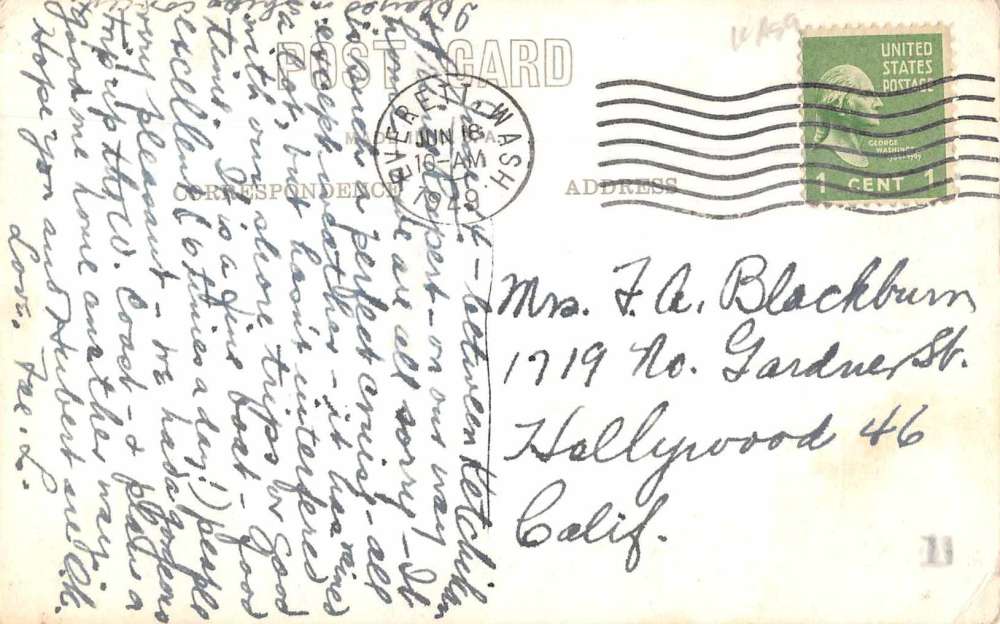 POST CARD
CORRESPONDENCE
ADDRESS
EVERETT WASH.
JUN 18
10-AM
1949
UNITED
STATES
POSTAGE
GEORGE
WASHINGTON
1 CENT 1
Mrs. F. A. Blackburn
1719 No. Gardner St.
Hollywood 46
Calif.
11
between Ketchikan
Rupert - on our way - It
home. We are all sorry - It
has been a perfect cruise - all
except weather - it has rained
a lot, but hasn't interfered
with our shore trips or good
time. It is a fine boat - food
excellent (6 times a day!) people
very pleasant - we had a gorgeous
trip up thru W. Coast - & plan a
good one home another way.
Hope you and Hubert are O.K.
Love, Fae. L.